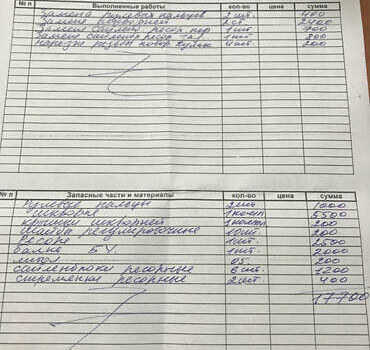 № п Выполненные работы кол-во цена сумма
Замена рулевых пальцев 2 шт. 400
Замена шкворней 2 ст. 2400
Замена сайлент. рессор. пер 1 шт 700
Замена сайлент. рессор. зад 1 шт 800
Нарезка резьбы 4 шт 200
№ п Запасные части и материалы кол-во цена сумма
Рулевые пальцы 2 шт 1000
шкворня 1 компл 5500
крышки шкворней 1 компл 200
шайбы регулировочные 10 шт. 200
Рессора 1 шт. 2500
балка Б.У. 1 шт. 2000
литол 05. 200
сайленблоки рессорные 6 шт. 1200
стремянка рессорные 2 шт 400
17700